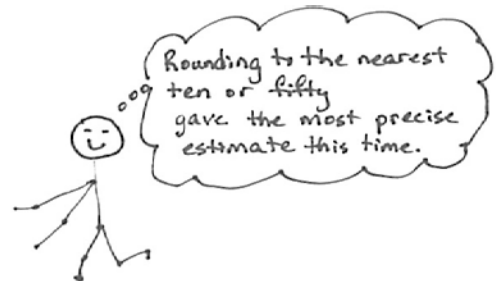 Rounding to the nearest
ten or fifty
gave the most precise
estimate this time.